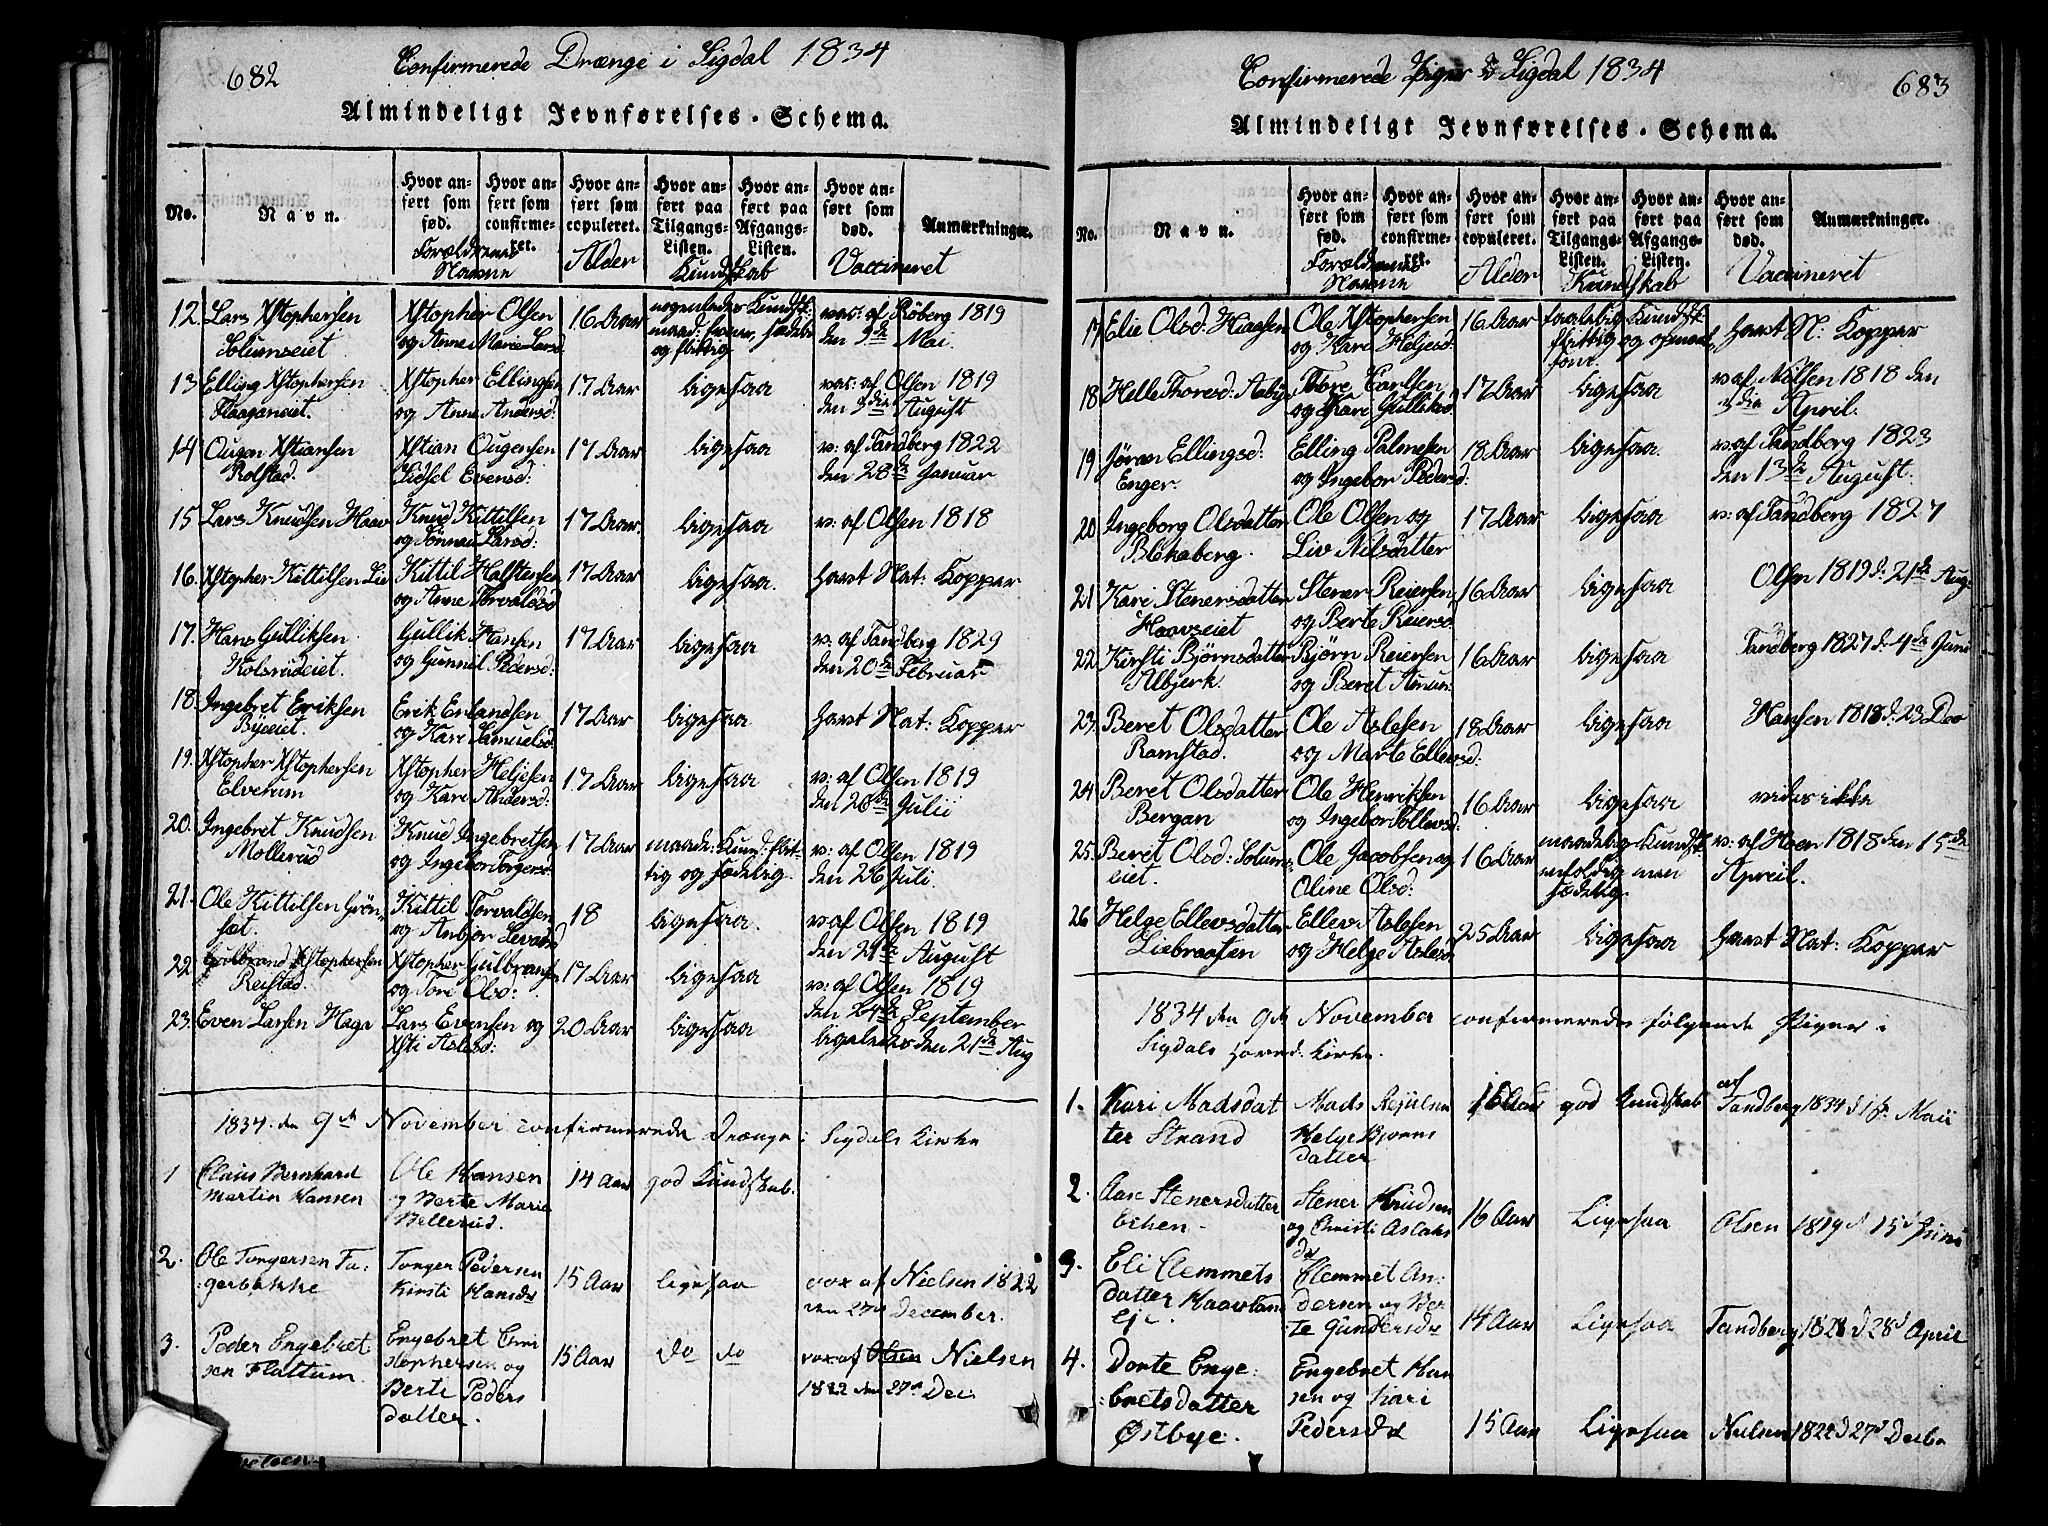 682
Confirmerede Drænge i Sigdal 1834
Almindeligt Jevnførelses-Schema.
No.
Navn.
Hvor anført som fød.
Hvor anført som confirmeret.
Hvor anført som copuleret.
Hvor anført paa Tilgangs-Listen.
Hvor anført paa Afgangs-Listen.
Hvor anført som død.
Anmærkninger.
Forældrenes Navne
Alder
Kundskab
Vaccineret
12. Lars Xstophersen Solumseiet Xstopher Olsen og Anne Marie Larsd 16 Aar vac: af Röberg 1819 den 9de Mai.
13 Elling Xstophersen Flaaganeiet. Xstopher Ellingsen og Anne Andersd: 17 Aar ligesaa vac: af Olsen 1819 den 3die August
14 Ougen Xstiansen Rolstad. Xstian Ougensen Sidsel Evensd: 17 Aar ligesaa v: af Tandberg 1822 den 28de Januar
15 Lars Knudsen Haav Knud Kittilsen og Tönnau Larsd: 17 Aar ligesaa v: af Olsen 1818
16. Xstopher Kittilsen Lie Kittil Halstensen og Anne Torvaldsd 17 Aar ligesaa. havt Nat: Kopper
17. Hans Gulliksen Kolsrudeiet. Gullik Hansen og Gunnil Pedersd: 17 Aar ligesaa v: af Tandberg 1829 den 20de Februar
18. Ingebret Eriksen Byeeiet. Erik Erlandsen og Kare Samuelsd 17 Aar ligesaa havt Nat: Kopper
19. Xstopher Xstophersen Elverum Xstopher Heljesen og Kari Andersd: 17 Aar ligesaa v: af Olsen 1819 den 20de Julii
20. Ingebret Knudsen Mollerud Knud Ingebretsen og Ingebor Torgersd: 17 Aar maade: Kund: flittig og sædelig. v: af Olsen 1819 den 26 Juli.
21. Ole Kittilsen Grönsæt. Kittil Torvaldsen og Anbjor 18 ligesaa. v af Olsen 1819 den 21de August
22 Gulbrand Xstophersen Reistad. Xstopher Gulbransen og Tore Olsd: 17 Aar ligesaa v: af Olsen 1819 den 24de September
23. Even Larsen Haga Lars Evensen og Xsti Aslesd: 20 Aar ligesaa ligeledes den 21de Aug
1834. den 9de November confirmerede Drænge i Sigdals Kirke
1 Claus Bernhard Martin Hansen Ole Hansen og Berte Marie Bellerud. 14 Aar god Kundskab.
2. Ole Torgersen Fagerbakke Torger Pedersen Kirsti Hansdr 15 Aar ligesaa vax af Nielsen 1822 den 27de December.
3. Peder Engebretsen Flattum. Engebret Christophersen og Berte Pedersdatter. 15 Aar do do vax af Olsen Nielsen 1822 den 27de Dec:
683
Confirmerede Piger i Sigdal 1834
Almindeligt Jevnførelses-Schema.
No.
Navn.
Hvor anført som fød.
Hvor anført som confirmeret.
Hvor anført som copuleret.
Hvor anført paa Tilgangs-Listen.
Hvor anført paa Afgangs-Listen.
Hvor anført som død.
Anmærkninger.
Forældrenes Navne
Alder
Kundskab
Vaccineret
17 Elie Olsd: Ole Xstophersen og Kari Heljesd: 16 Aar taalelig Kundsk: flittig og havt N: Kopper
18 Helle Thoresd: Aasby Tore Carlsen og Kari Gulliksd: 17 Aar ligesaa v af Nilsen 1818 den 3die April.
19 Jöran Ellingsd: Enger. Elling Palmesen og Ingebor Pedersd: 18 Aar ligesaa. v af Tandberg 1823 den 13de August.
20 Ingeborg Olsdatter Blekaberg. Ole Olsen og Liv Nilsdatter 17 Aar ligesaa v: af Tandberg 1827
21 Kari Stenersdatter Haavseiet Stener Reiersen og Berte Reiersd 16 Aar ligesaa Olsen 1819 d. 21de Aug:
22. Kirsti Björnsdatter Albjerk. Björn Reiersen og Beret Amun: 16 Aar ligesaa Tandberg 1827 d. 4de Juni
23. Beret Olsdatter Ramstad. Ole Aslesen og Marte Ellevsd: 18 Aar ligesaa Hansen 1818 d. 23 Dec
24 Beret Olsdatter Bergan Ole Henriksen og Ingebor 16 Aar ligesaa vides ikke
25. Beret Olsd: Solumseiet. Ole Jacobsen og Oline Olsd: 16 Aar maadelig Kundsk: men sædelig v: af Hoen 1818 den 15de April.
26 Helge Ellevsdatter Liebraaten Ellev Aslesen og Helge Aslesd 25 Aar ligesaa havt Nat: Kopper
1834 den 9de November confirmeredes følgende Piger i
Sigdals Hoved Kirke.
1. Kari Madsdatter Strand Mads Helge Bjørnsdatter 16 Aar god Kundskab af Tandberg 1834 d 1ste Maii
2. Aase Stenersdatter Eken. Stener Knudsen og Christi Aslaksdr 16 Aar Ligesaa Olsen 1819 d 15d Juni
3. Eli Clemmetsdatter Haavland Eje. Clemmet Andersen og Berte Gundersdr 14 Aar Ligesaa Tandberg 1828 d 28d April
4. Dorte Engebretsdatter Østbye. Engebret Hansen og Kari Pedersdr 15 Aar Ligesaa Nielsen 1822 d 27d Decbr